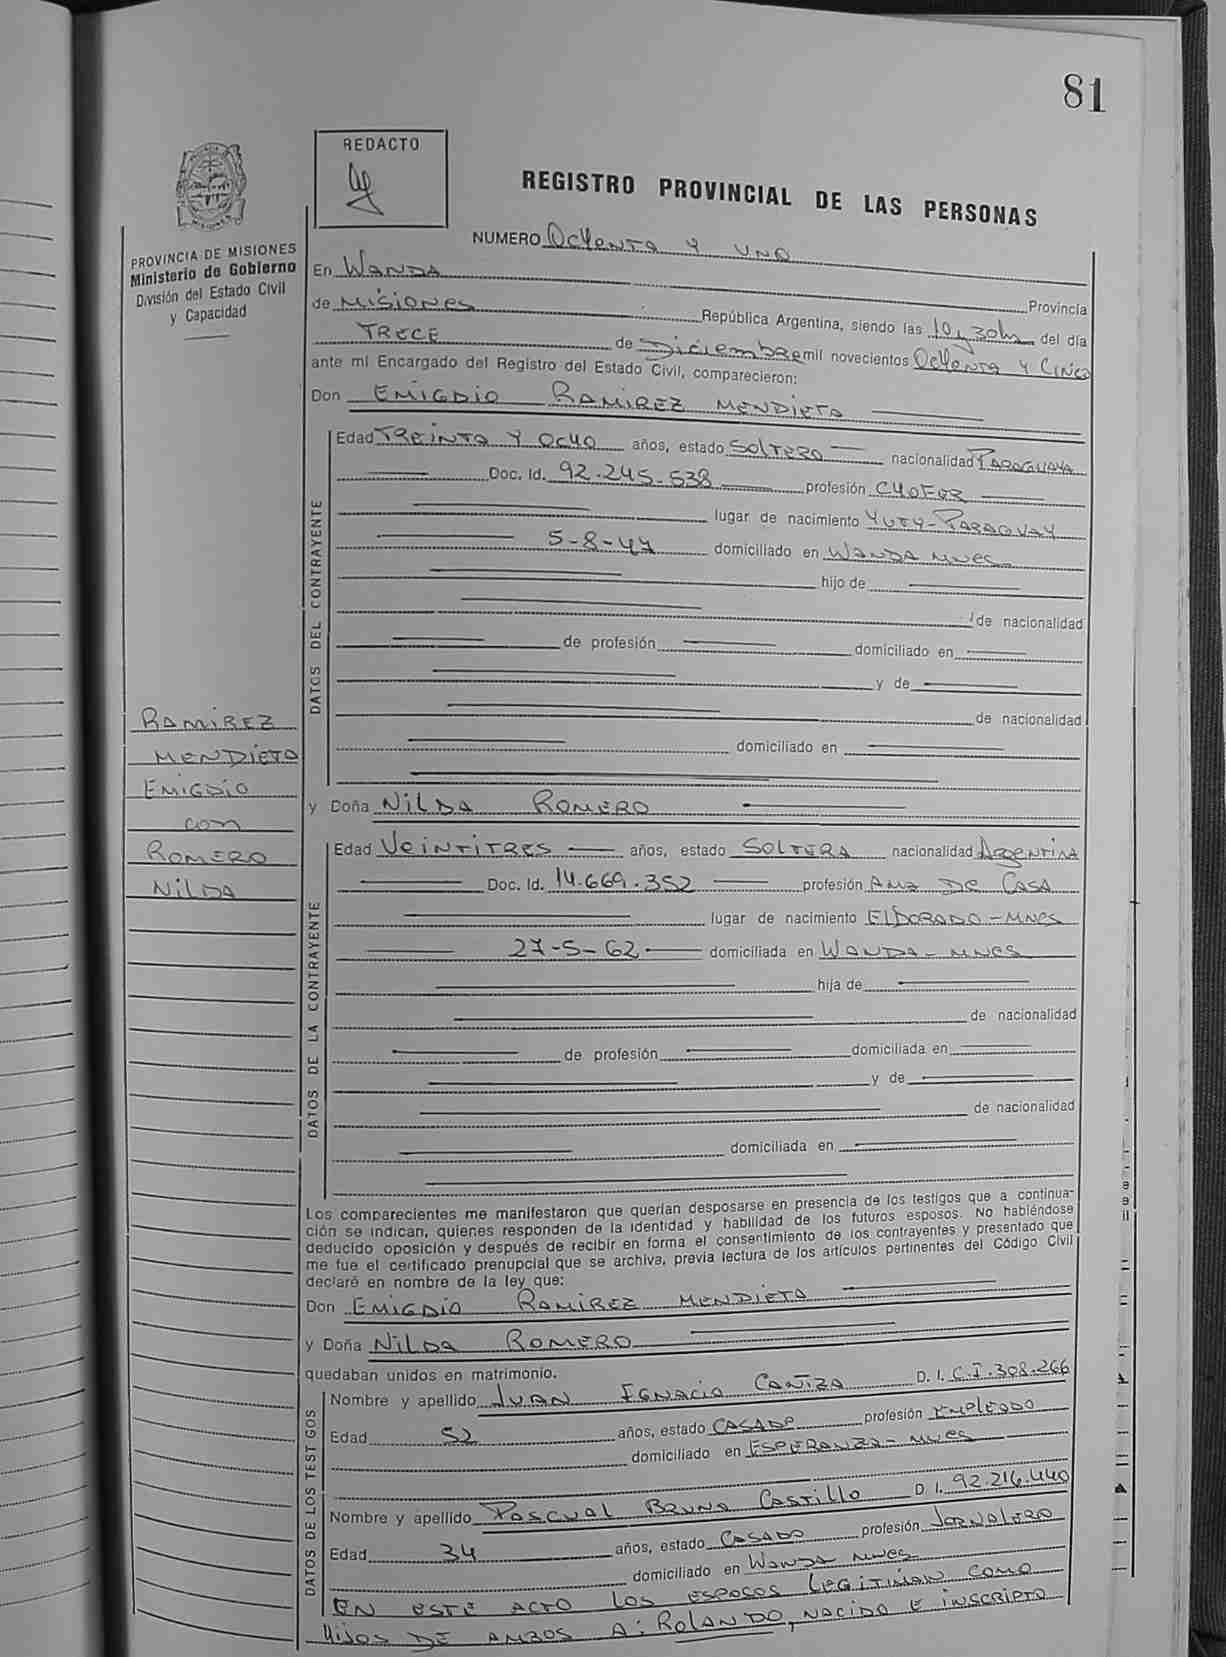 81
REDACTO
REGISTRO PROVINCIAL DE LAS PERSONAS
PROVINCIA DE MISIONES
Ministerio de Gobierno
División del Estado Civil
y Capacidad
NUMERO Ochenta y uno
En Wanda Provincia
de Misiones República Argentina, siendo las 10 y 30 hs del día
TRECE de Diciembre mil novecientos Ochenta y Cinco
ante mí Encargado del Registro del Estado Civil, comparecieron:
Don EMIGDIO RAMIREZ MENDIETA
DATOS DEL CONTRAYENTE
Edad TREINTA Y OCHO años, estado SOLTERO nacionalidad PARAGUAYA
Doc. Id. 92.245.538 profesión CHOFER
lugar de nacimiento YUTY-PARAGUAY
5-8-47 domiciliado en WANDA MNES
hijo de
de nacionalidad
de profesión domiciliado en
y de
de nacionalidad
domiciliado en
RAMIREZ
MENDIETA
EMIGDIO
con
ROMERO
NILDA
y Doña NILDA ROMERO
DATOS DE LA CONTRAYENTE
Edad VEINTITRES años, estado SOLTERA nacionalidad ARGENTINA
Doc. Id. 14.669.352 profesión AMA DE CASA
lugar de nacimiento ELDORADO-MNES
27-5-62 domiciliada en WANDA-MNES
hija de
de nacionalidad
de profesión domiciliada en
y de
de nacionalidad
domiciliada en
Los comparecientes me manifestaron que querían desposarse en presencia de los testigos que a continua-
ción se indican, quienes responden de la identidad y habilidad de los futuros esposos. No habiéndose
deducido oposición y después de recibir en forma el consentimiento de los contrayentes y presentado que
me fue el certificado prenupcial que se archiva, previa lectura de los artículos pertinentes del Código Civil
declaré en nombre de la ley que:
Don EMIGDIO RAMIREZ MENDIETA
y Doña NILDA ROMERO
quedaban unidos en matrimonio.
DATOS DE LOS TESTIGOS
Nombre y apellido JUAN IGNACIO CANIZA D. I. C.I.308.266
Edad 52 años, estado CASADO profesión EMPLEADO
domiciliado en ESPERANZA-MNES
Nombre y apellido PASCUAL BRUNO CASTILLO D. I. 92.216.440
Edad 34 años, estado CASADO profesión JORNALERO
domiciliado en WANDA MNES
EN ESTE ACTO LOS ESPOSOS LEGITIMAN COMO
HIJOS DE AMBOS A: ROLANDO, NACIDO E INSCRIPTO